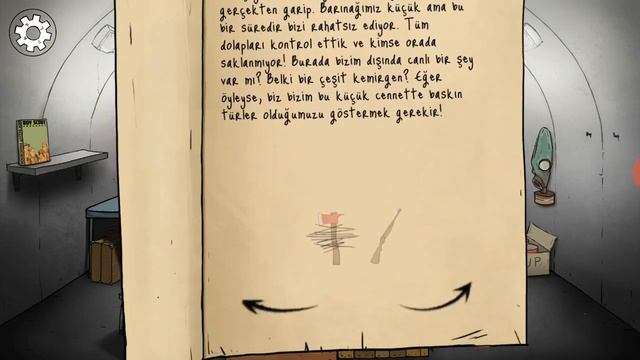 gerçekten garip. Barınağımız küçük ama bu
bir süredir bizi rahatsız ediyor. Tüm
dolapları kontrol ettik ve kimse orada
saklanmıyor! Burada bizim dışında canlı bir şey
var mı? Belki bir çeşit kemirgen? Eğer
öyleyse, biz bizim bu küçük cennette baskın
türler olduğumuzu göstermek gerekir!
BOY SCOUT
UP